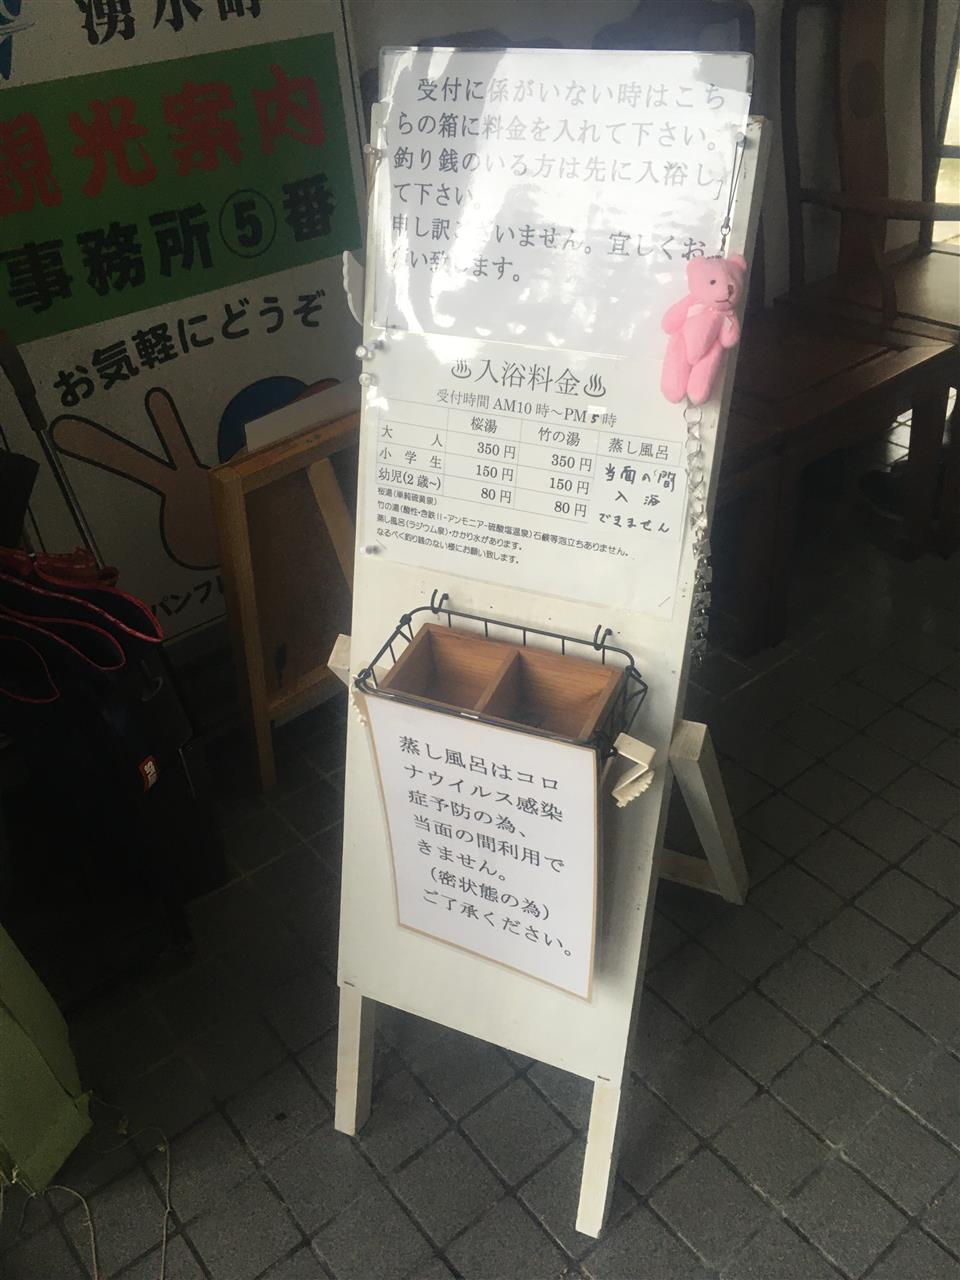 湧水町
観光案内
事務所⑤番
お気軽にどうぞ
パンフレ
受付に係がいない時はこち
らの箱に料金を入れて下さい。
釣り銭のいる方は先に入浴し
て下さい。
申し訳ございません。宜しくお
願い致します。
♨入浴料金♨
受付時間 AM10時～PM5時
桜湯 竹の湯 蒸し風呂
大人 350円 350円 当面の間
小学生 150円 150円 入浴
幼児(2歳～) 80円 80円 できません
桜湯(単純硫黄泉)
竹の湯(酸性・含鉄II-アンモニア-硫酸塩温泉)石鹸等泡立ちありません。
蒸し風呂(ラジウム泉)・かかり水があります。
なるべく釣り銭のない様にお願い致します。
蒸し風呂はコロ
ナウイルス感染
症予防の為、
当面の間利用で
きません。
(密状態の為)
ご了承ください。